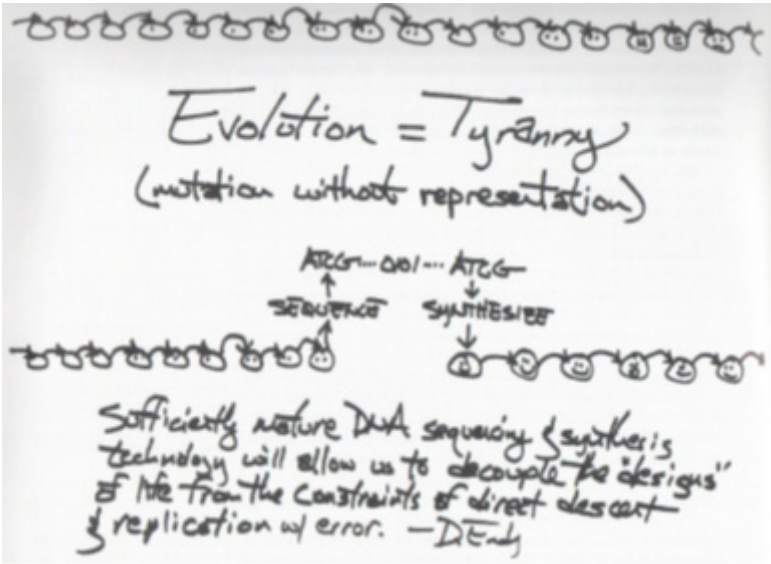 Evolution = Tyranny
(mutation without representation)
ATCG...001...ATCG
SEQUENCE SYNTHESIZE
Sufficiently mature DNA sequencing & synthesis
technology will allow us to decouple the "designs"
of life from the constraints of direct descent
& replication w/ error. —D.Endy